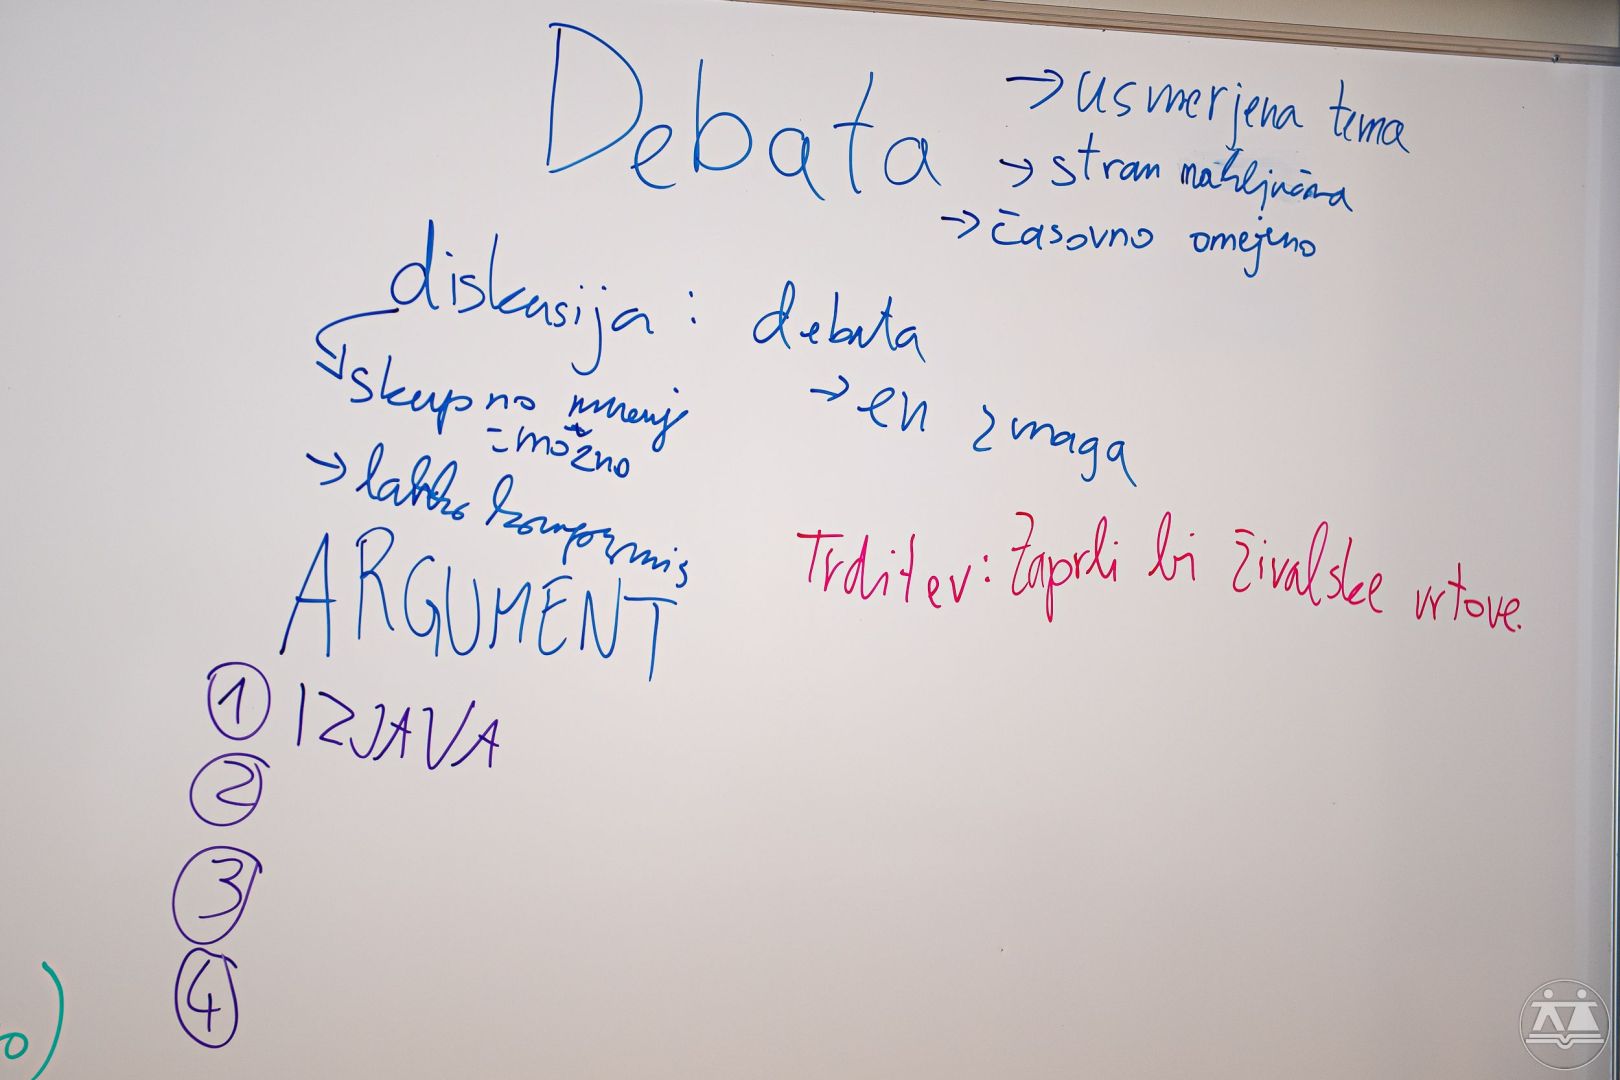 Debata
→ usmerjena tema
→ stran naključna
→ časovno omejeno
diskusija : debata
skupno mnenje
= možno
→ lahko kompormis
→ en zmaga
ARGUMENT
Trditev: Zaprli bi živalske vrtove.
① IZJAVA
②
③
④